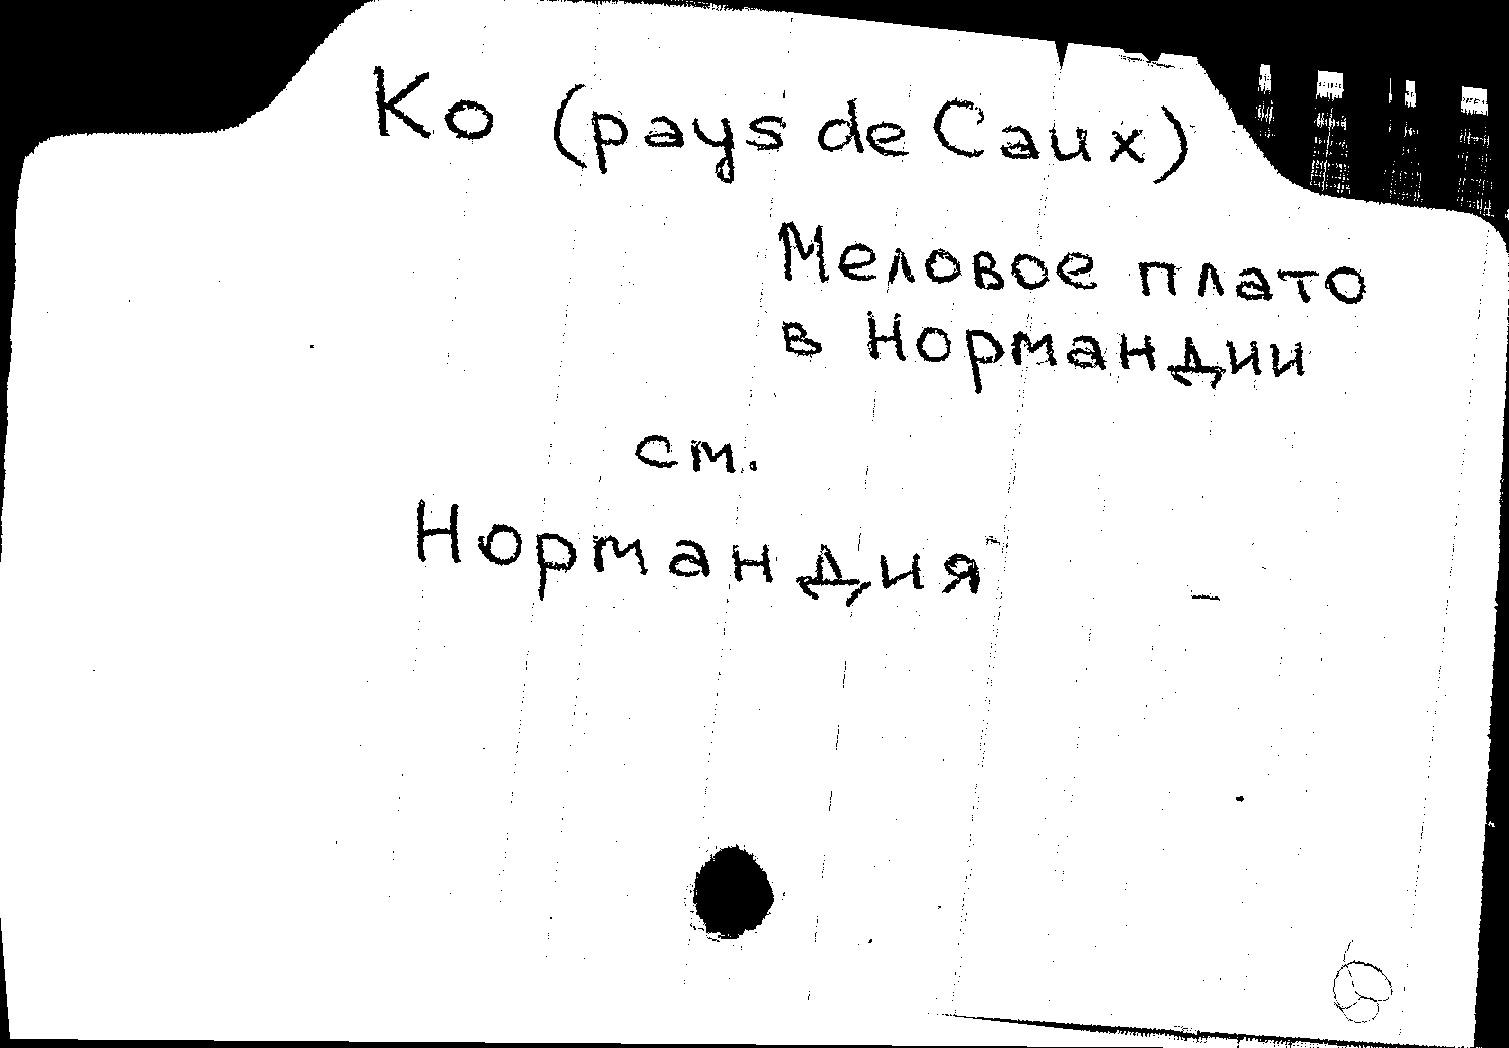 Ко (pays de Caux)
Меловое плато
в Нормандии
см.
Нормандия